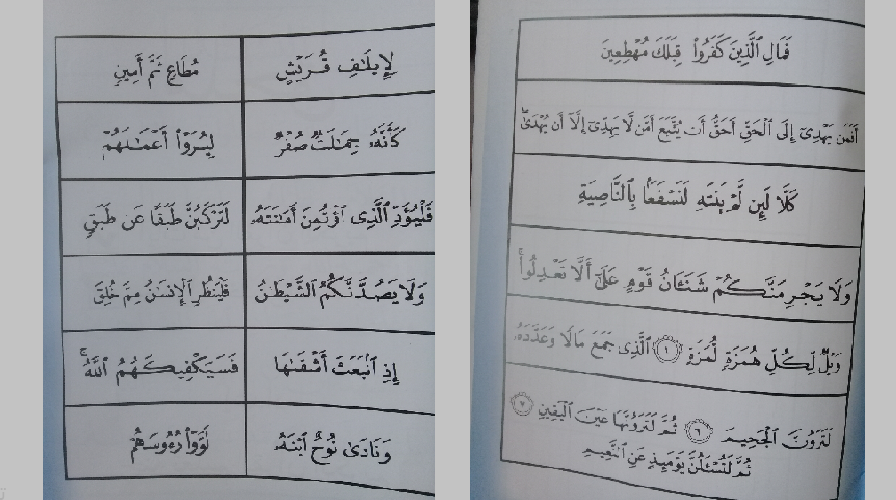 فَمَالِ الَّذِينَ كَفَرُوا۟ قِبَلَكَ مُهْطِعِينَ
أَفَمَن يَهْدِىٓ إِلَى ٱلْحَقِّ أَحَقُّ أَن يُتَّبَعَ أَمَّن لَّا يَهِدِّىٓ إِلَّآ أَن يُهْدَىٰ
كَلَّا لَئِن لَّمْ يَنتَهِ لَنَسْفَعًۢا بِالنَّاصِيَةِ
وَلَا يَجْرِمَنَّكُمْ شَنَـَٔانُ قَوْمٍ عَلَىٰٓ أَلَّا تَعْدِلُوا۟
وَيْلٌ لِّكُلِّ هُمَزَةٍ لُّمَزَةٍ ١ ٱلَّذِى جَمَعَ مَالًا وَعَدَّدَهُۥ
لَتَرَوُنَّ ٱلْجَحِيمَ ٦ ثُمَّ لَتَرَوُنَّهَا عَيْنَ ٱلْيَقِينِ ٧
ثُمَّ لَتُسْـَٔلُنَّ يَوْمَئِذٍ عَنِ ٱلنَّعِيمِ
لِإِيلَـٰفِ قُرَيْشٍ
مُّطَاعٍ ثَمَّ أَمِينٍ
كَأَنَّهُۥ جِمَـٰلَتٌ صُفْرٌ
لِّيُرَوْا۟ أَعْمَـٰلَهُمْ
فَلْيُؤَدِّ ٱلَّذِى ٱؤْتُمِنَ أَمَـٰنَتَهُۥ
لَتَرْكَبُنَّ طَبَقًا عَن طَبَقٍ
وَلَا يَصُدَّنَّكُمُ ٱلشَّيْطَـٰنُ
فَلْيَنظُرِ ٱلْإِنسَـٰنُ مِمَّ خُلِقَ
إِذِ ٱنۢبَعَثَ أَشْقَىٰهَا
فَسَيَكْفِيكَهُمُ ٱللَّهُ
وَنَادَىٰ نُوحٌ ٱبْنَهُۥ
لَوَّوْا۟ رُءُوسَهُمْ